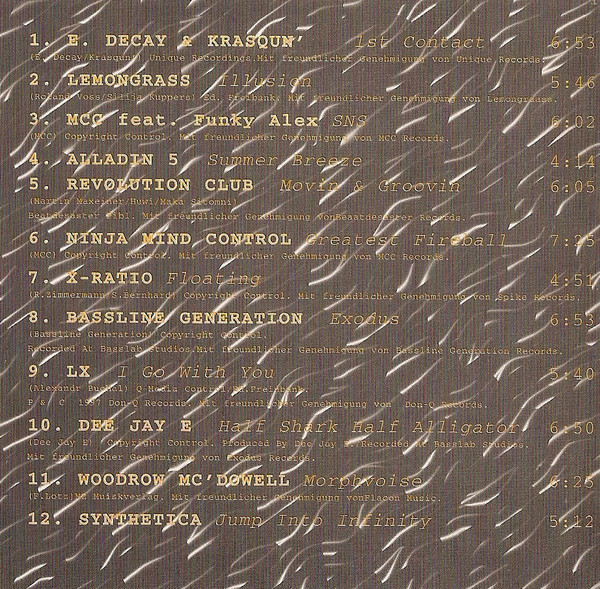 1. E. DECAY & KRASQUN' 1st Contact 6:53
(E. Decay/Krasqun') Unique Recordings.Mit freundlicher Genehmigung von Unique Records.
2. LEMONGRASS Illusion 5:46
(Roland Voss/Silija Kuppers) Ed. Freibank. Mit freundlicher Genehmigung von Lemongrass.
3. MCC feat. Funky Alex SNS 6:02
(MCC) Copyright Control. Mit freundlicher Genehmigung von MCC Records.
4. ALLADIN 5 Summer Breeze 4:14
5. REVOLUTION CLUB Movin & Groovin 6:05
(Martin Maxeiner/Huwi/Maka Sitomni)
Beatdesaster Bibl. Mit freundlicher Genehmigung vonBeaatdesaster Records.
6. NINJA MIND CONTROL Greatest Fireball 7:25
(MCC) Copyright Control. Mit freundlicher Genehmigung von MCC Records.
7. X-RATIO Floating 4:51
(R.Zimmermann/S.Bernhard) Copyright Control. Mit freundlicher Genehmigung von Spike Records.
8. BASSLINE GENERATION Exodus 6:53
(Bassline Generation) Copyright Control.
Recorded At Basslab Studios.Mit freundlicher Genehmigung von Bassline Generation Records.
9. LX I Go With You 5:40
(Alexandr Buchal) Q-Media Control/Ed.Freibank.
P & C 1997 Don-Q Records. Mit freundlicher Genehmigung von Don-Q Records.
10. DEE JAY E Half Shark Half Alligator 6:50
(Dee Jay E) Copyright Control. Produced By Dee Jay E. Recorded At Basslab Studios.
Mit freundlicher Genehmigung von Exodus Records.
11. WOODROW MC'DOWELL Morphvoise 6:26
(P.Lotz) Muiskverlag. Mit freundlicher Genehmigung vonFlacon Music.
12. SYNTHETICA Jump Into Infinity 5:12